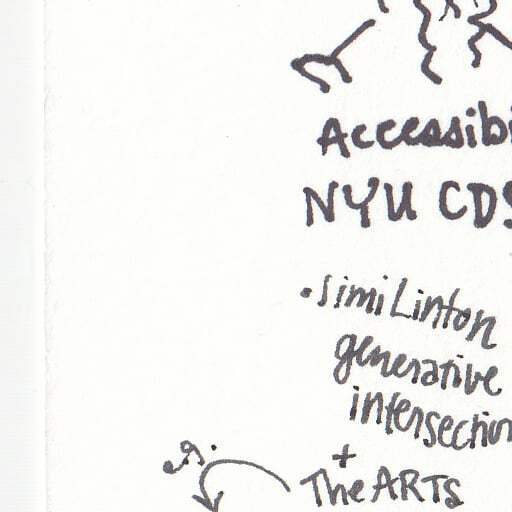 Accessibi
NYU CDS
• Simi Linton
generative
intersection
+
The ARTS